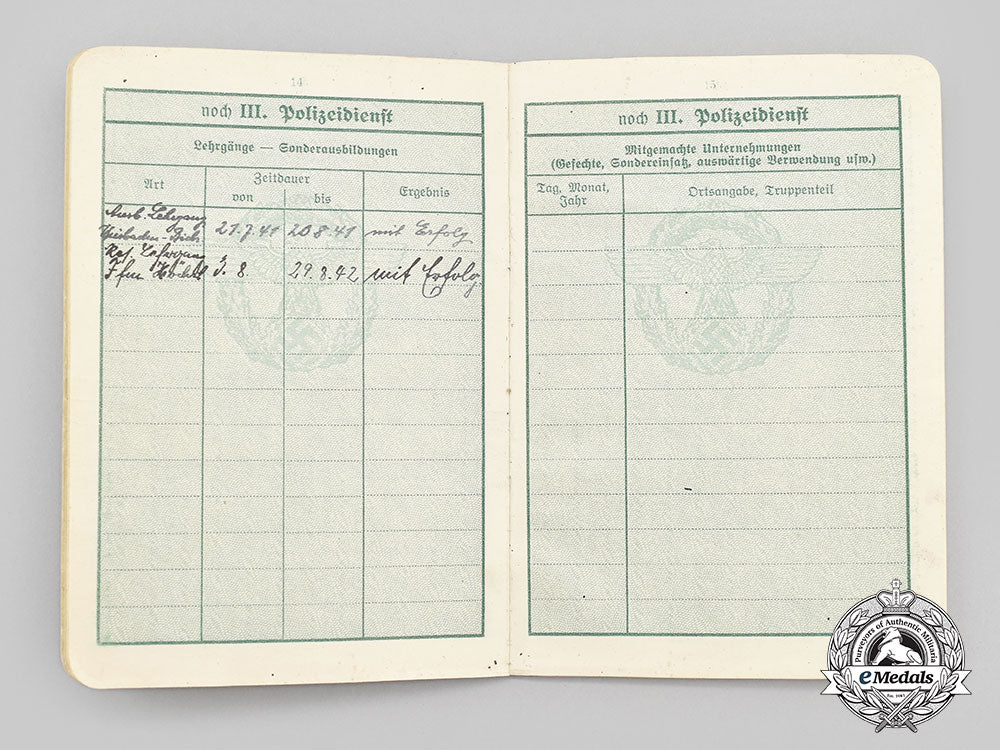 14
noch III. Polizeidienst
Lehrgänge — Sonderausbildungen
Art
Zeitdauer
von
bis
Ergebnis
Ausb. Lehrgang
Wiesbaden- 21.7.41 20.8.41 mit Erfolg
Lehrgang
Ffm Höchst 3. 8. 29.8.42 mit Erfolg
15
noch III. Polizeidienst
Mitgemachte Unternehmungen
(Gefechte, Sondereinsatz, auswärtige Verwendung usw.)
Tag, Monat,
Jahr
Ortsangabe, Truppenteil
Purveyors of Authentic Militaria
eMedals